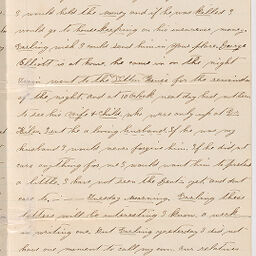 I would hold the money and if he was Killed I
would go to housekeeping on his insurance money.
Darling, wish I could send him in your place. George
Elliott is at home, he came in on the night
went to the House for the remainder
of the night, and at 10 o'clock next day went
to see his wife & child, who was only up at
a loving husband. If he was my
husband I would never forgive him. If he did not
care anything for me I would want him to pretend
a little. I have not seen the yet and dont
care to, Tuesday Morning. Darling these
letters will be interesting I know, a week
in writing one. But Darling yesterday I did not
have one moment to call my own. Our relatives